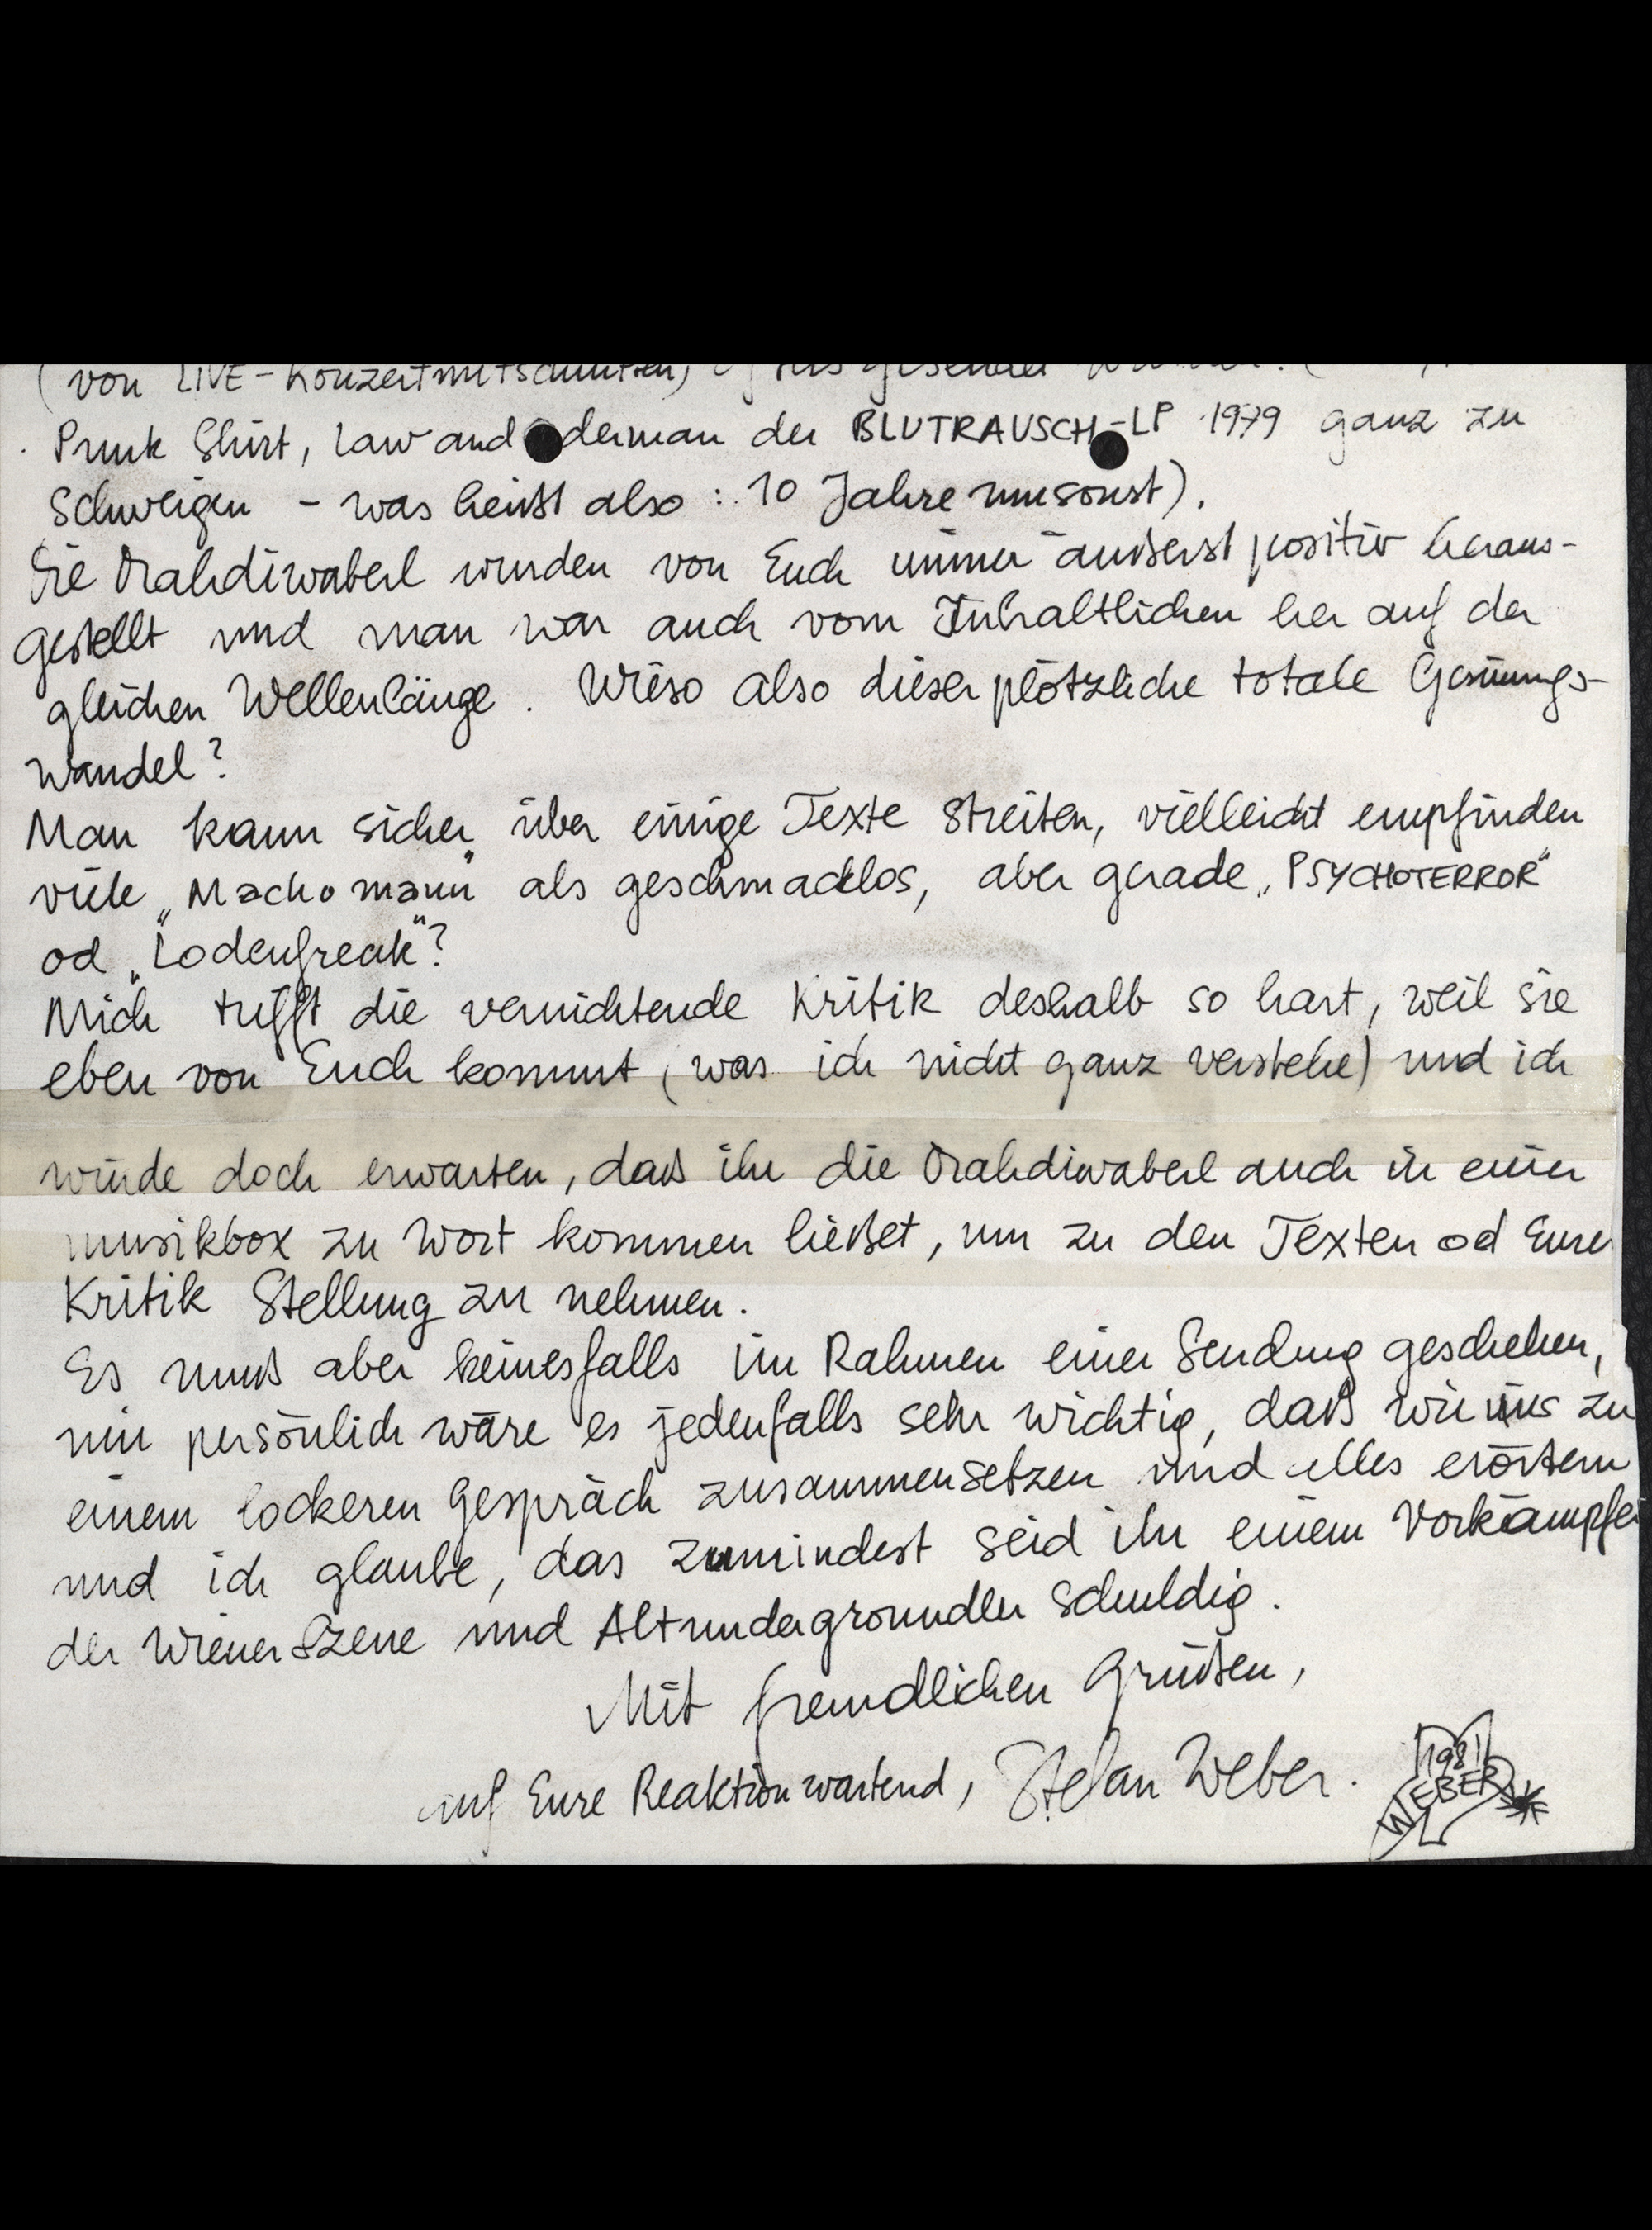 (von LIVE-Konzertmitschnitten)
Punk Shirt, Law and derman der BLUTRAUSCH-LP 1979 ganz zu
schweigen - was heißt also: 10 Jahre umsonst).
Die Drahdiwaberl wurden von Euch immer äußerst positiv heraus-
gestellt und man war auch vom Inhaltlichen her auf der
gleichen Wellenlänge. Wieso also dieser plötzliche totale Gesinnungs-
wandel?
Man kann sicher über einige Texte streiten, vielleicht empfinden
viele „Macho mann" als geschmacklos, aber gerade „PSYCHOTERROR"
od „Lodenfreak"?
Mich trifft die vernichtende Kritik deshalb so hart, weil sie
eben von Euch kommt (was ich nicht ganz verstehe) und ich
würde doch erwarten, daß ihr die Drahdiwaberl auch in einer
musikbox zu Wort kommen ließet, um zu den Texten od Eurer
Kritik Stellung zu nehmen.
Es muß aber keinesfalls im Rahmen einer Sendung geschehen,
mir persönlich wäre es jedenfalls sehr wichtig, daß wir uns zu
einem lockeren Gespräch zusammensetzen und alles erörtern
und ich glaube, das zumindest seid ihr einem Vorkämpfer
der Wiener Szene und Altundergroundler schuldig.
Mit freundlichen Grüßen,
auf Eure Reaktion wartend, Stefan Weber.
1981
WEBER